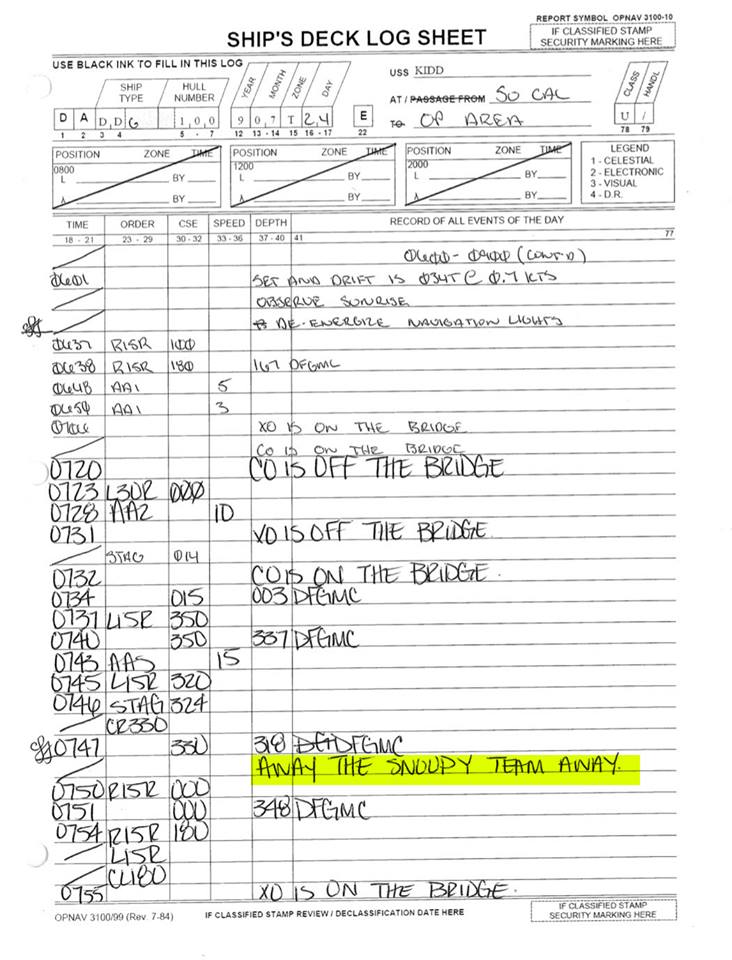 REPORT SYMBOL OPNAV 3100-10
SHIP'S DECK LOG SHEET
IF CLASSIFIED STAMP
SECURITY MARKING HERE
USE BLACK INK TO FILL IN THIS LOG
SHIP TYPE HULL NUMBER YEAR MONTH ZONE DAY
USS KIDD
AT / PASSAGE FROM SO CAL
TO OP AREA
CLASS HANDL
D A D, D G 1, 0, 0 9 0, 7 T 2, 4 E U /
1 2 3 4 5 - 7 12 13 - 14 15 16 - 17 22 78 79
POSITION ZONE TIME POSITION ZONE TIME POSITION ZONE TIME LEGEND
0800 1200 2000
L BY L BY L BY
λ BY λ BY λ BY
1 - CELESTIAL
2 - ELECTRONIC
3 - VISUAL
4 - D.R.
TIME ORDER CSE SPEED DEPTH RECORD OF ALL EVENTS OF THE DAY
18 - 21 23 - 29 30 - 32 33 - 36 37 - 40 41 77
0600 - 0900 (CONT'D)
0601 SET AND DRIFT IS 034T @ 0.7 KTS
OBSERVE SUNRISE
DE-ENERGIZE NAVIGATION LIGHTS
0637 R15R 100
0638 R15R 180 167 DFGMC
0648 AA1 5
0654 AA1 3
XO IS ON THE BRIDGE
CO IS ON THE BRIDGE
0720 CO IS OFF THE BRIDGE
0723 L30R 000
0728 AA2 10
0731 XO IS OFF THE BRIDGE
STAG 014
0732 CO IS ON THE BRIDGE.
0734 015 003 DFGMC
0737 L15R 350
0740 350 337 DFGMC
0743 AAS 15
0745 L15R 320
0746 STAG 324
CR330
0747 330 318 DFGMC
AWAY THE SNOOPY TEAM AWAY.
0750 R15R 000
0751 000 348 DFGMC
0754 R15R 180
L15R
CL180
0755 XO IS ON THE BRIDGE.
OPNAV 3100/99 (Rev. 7-84) IF CLASSIFIED STAMP REVIEW / DECLASSIFICATION DATE HERE
IF CLASSIFIED STAMP
SECURITY MARKING HERE